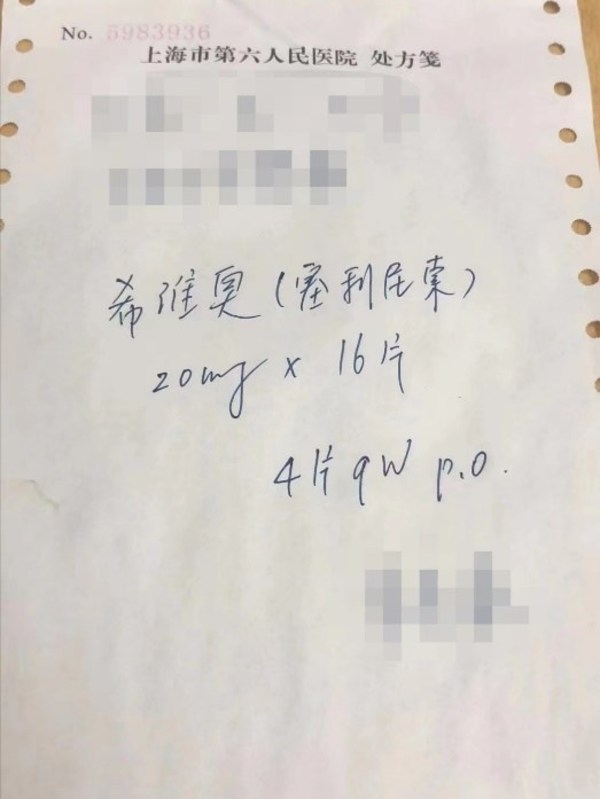 No. 5983936
上海市第六人民医院 处方笺
希维奥(塞利尼索)
20mg x 16片
4片 qW p.o.